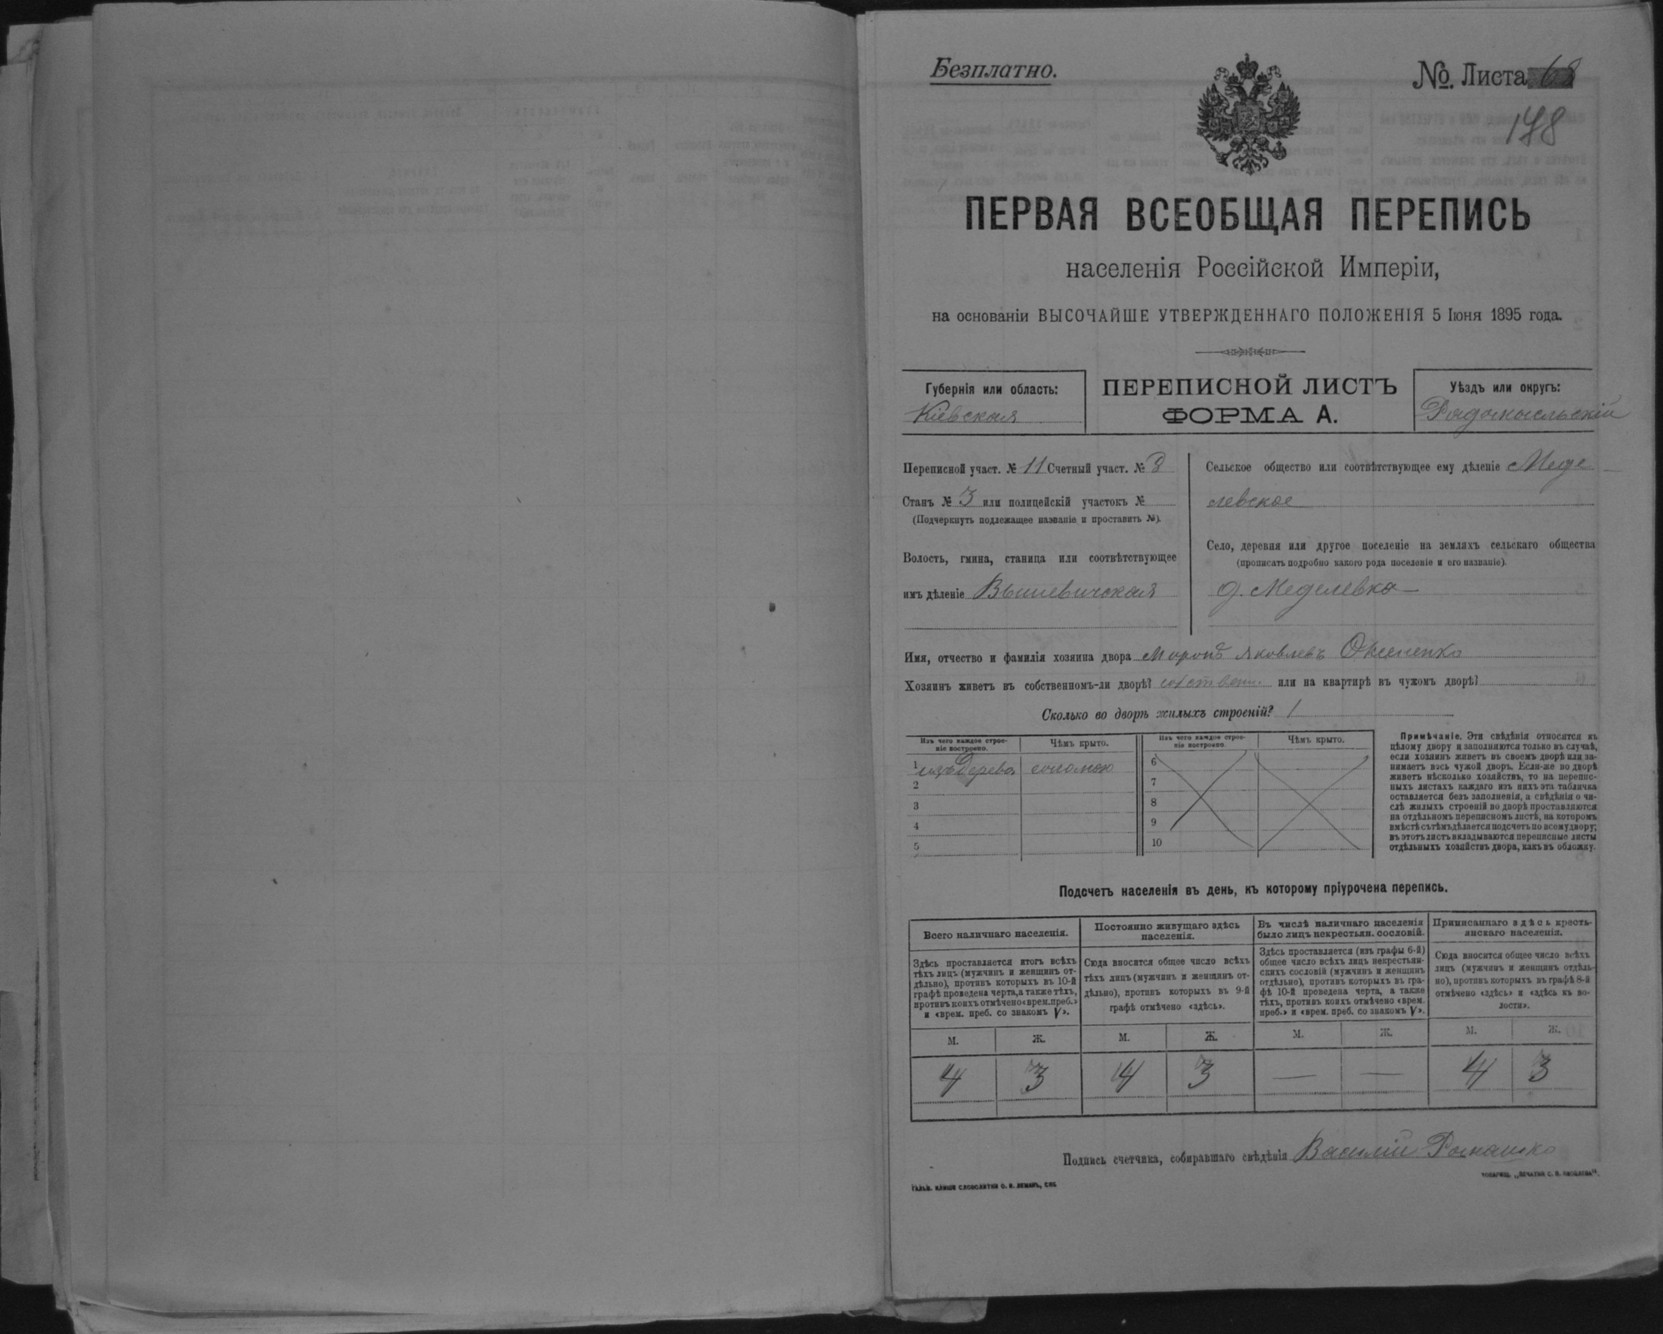 Безплатно.
№. Листа 68
178
ПЕРВАЯ ВСЕОБЩАЯ ПЕРЕПИСЬ
населенія Россійской Имперіи,
на основаніи ВЫСОЧАЙШЕ УТВЕРЖДЕННАГО ПОЛОЖЕНІЯ 5 Іюня 1895 года.
Губернія или область:
Кіевская
ПЕРЕПИСНОЙ ЛИСТЪ
ФОРМА А.
Уѣздъ или округъ:
Радомысльскій
Переписной участ. № 11 Счетный участ. № 8
Станъ № 3 или полицейскій участокъ №
(Подчеркнуть подлежащее названіе и проставить №).
Волость, гмина, станица или соотвѣтствующее
имъ дѣленіе Вышевичская
Сельское общество или соотвѣтствующее ему дѣленіе Меде
левское
Село, деревня или другое поселеніе на земляхъ сельскаго общества
(прописать подробно какого рода поселеніе и его названіе).
д. Меделевка
Имя, отчество и фамилія хозяина двора Миронъ Яковлевъ
Хозяинъ живетъ въ собственномъ-ли дворѣ? собствен. или на квартирѣ въ чужомъ дворѣ?
Сколько во дворѣ жилыхъ строеній? 1
Изъ чего каждое строе-
ніе построено.
Чѣмъ крыто.
Изъ чего каждое строе-
ніе построено.
Чѣмъ крыто.
1 изъ дерева соломою
2
3
4
5
6
7
8
9
10
Примѣчаніе. Эти свѣдѣнія относятся къ
цѣлому двору и заполняются только въ случаѣ,
если хозяинъ живетъ въ своемъ дворѣ или за-
нимаетъ весь чужой дворъ. Если-же во дворѣ
живетъ нѣсколько хозяйствъ, то на перепис-
ныхъ листахъ каждаго изъ нихъ эта табличка
оставляется безъ заполненія, а свѣдѣнія о чи-
слѣ жилыхъ строеній во дворѣ проставляются
на отдѣльномъ переписномъ листѣ, на которомъ
вмѣстѣ съ тѣмъ дѣлается подсчетъ по всему двору;
въ этотъ листъ вкладываются переписные листы
отдѣльныхъ хозяйствъ двора, какъ въ обложку.
Подсчетъ населенія въ день, къ которому пріурочена перепись.
Всего наличнаго населенія.
Здѣсь проставляется итогъ всѣхъ
тѣхъ лицъ (мужчинъ и женщинъ от-
дѣльно), противъ которыхъ въ 10-й
графѣ проведена черта, а также тѣхъ,
противъ коихъ отмѣчено «врем. преб.»
и «врем. преб. со знакомъ V».
Постоянно живущаго здѣсь
населенія.
Сюда вносится общее число всѣхъ
тѣхъ лицъ (мужчинъ и женщинъ от-
дѣльно), противъ которыхъ въ 9-й
графѣ отмѣчено «здѣсь».
Въ числѣ наличнаго населенія
было лицъ некрестьян. сословій.
Здѣсь проставляется (изъ графы 6-й)
общее число всѣхъ лицъ некрестьян-
скихъ сословій (мужчинъ и женщинъ
отдѣльно), противъ которыхъ въ гра-
фѣ 10-й проведена черта, а также
тѣхъ, противъ коихъ отмѣчено «врем.
преб.» и «врем. преб. со знакомъ V».
Приписаннаго здѣсь кресть-
янскаго населенія.
Сюда вносится общее число всѣхъ
лицъ (мужчинъ и женщинъ отдѣль-
но), противъ которыхъ въ графѣ 8-й
отмѣчено «здѣсь» и «здѣсь въ во-
лости».
М. Ж. М. Ж. М. Ж. М. Ж.
4 3 4 3 — — 4 3
Подпись счетчика, собиравшаго свѣдѣнія Василій Ромашко